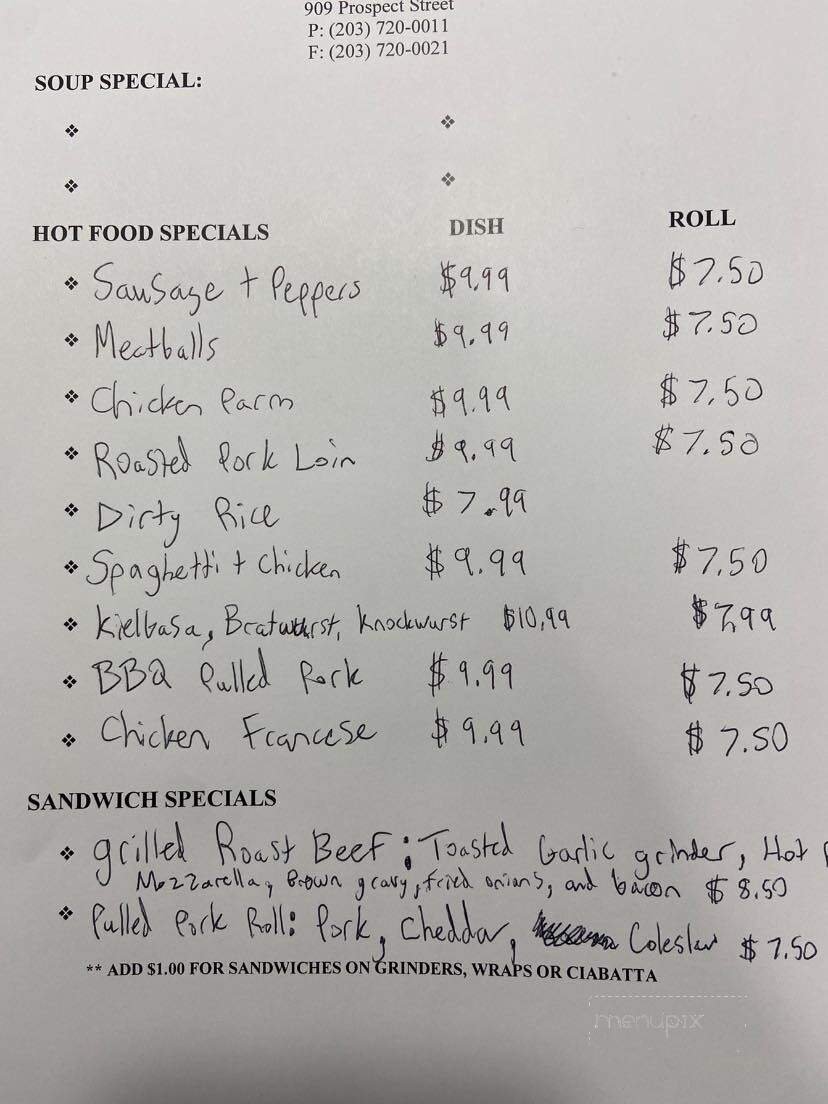 909 Prospect Street
P: (203) 720-0011
F: (203) 720-0021
SOUP SPECIAL:
HOT FOOD SPECIALS DISH ROLL
❖ Sausage + Peppers $9.99 $7.50
❖ Meatballs $9.99 $7.50
❖ Chicken Parm $9.99 $7.50
❖ Roasted Pork Loin $9.99 $7.50
❖ Dirty Rice $7.99
❖ Spaghetti + Chicken $9.99 $7.50
❖ Kielbasa, Bratwurst, Knockwurst $10.99 $7.99
❖ BBQ Pulled Pork $9.99 $7.50
❖ Chicken Francese $9.99 $7.50
SANDWICH SPECIALS
❖ grilled Roast Beef: Toasted Garlic grinder, Hot
Mozzarella, Brown gravy, fried onions, and bacon $8.50
❖ Pulled Pork Roll: Pork, Cheddar, Coleslaw $7.50
** ADD $1.00 FOR SANDWICHES ON GRINDERS, WRAPS OR CIABATTA
menupix